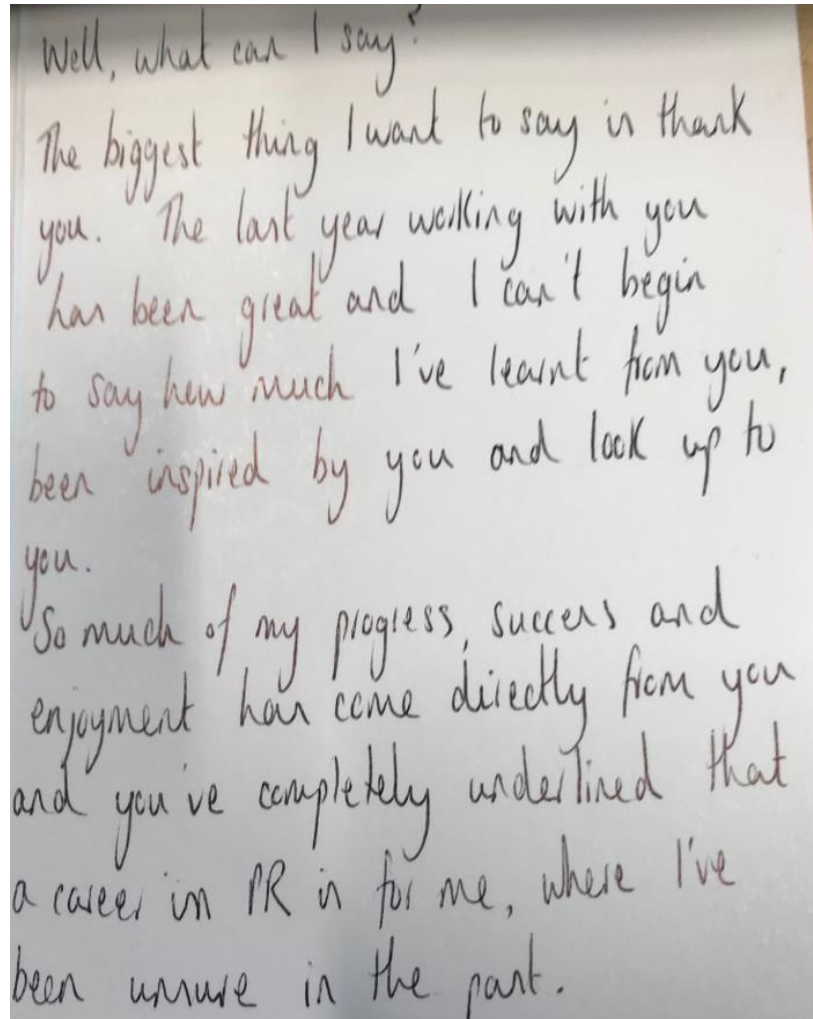 Well, what can I say?
The biggest thing I want to say is thank
you. The last year working with you
has been great and I can't begin
to say how much I've learnt from you,
been inspired by you and look up to
you.
So much of my progress, success and
enjoyment has come directly from you
and you've completely underlined that
a career in PR is for me, where I've
been unsure in the past.